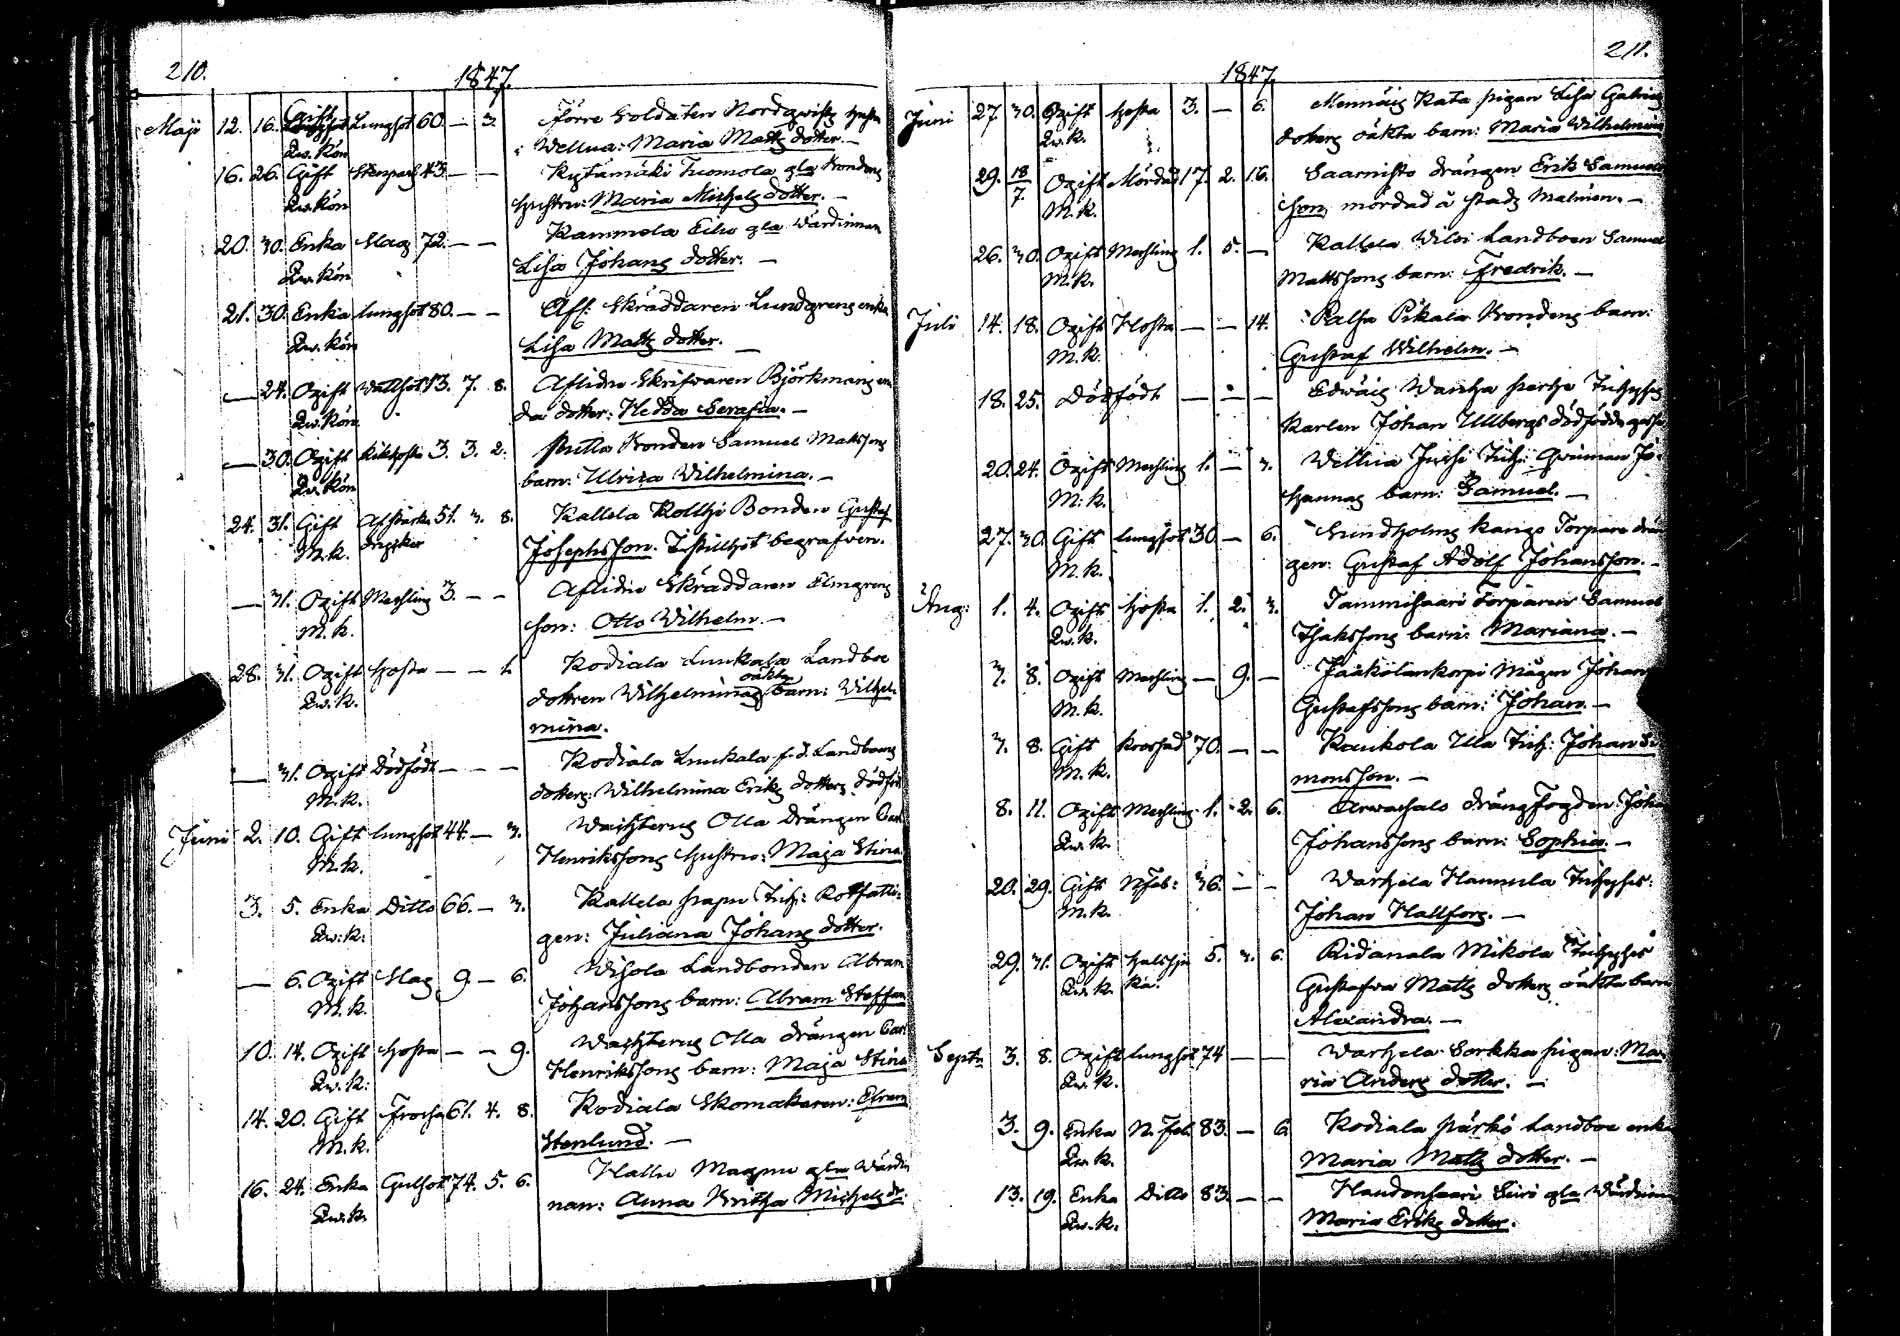 210.
1847.
Maji 12. 16. Gift Lungsot 60. — 3. Förre Soldaten Nordqwists hustru
Qw. Kön Wellua: Maria Matts dotter. —
16. 26. Gift Stenpass. 43. — — Kytämäki Tuomola gla Bondens
Qw. Kön hustru: Maria Michels dotter. —
20. 30. Enka Slag 72. — — Kammola Eilu gla Wärdinnan
Qw. Kön Lisa Johans dotter. —
21. 30. Enka lungsot 80. — — Afl: Skräddaren Lundgrens enka
Qw. Kön Lisa Matts dotter. —
— 24. Ogift Wattsot 13. 7. 8. Aflidne Skrifvaren Björkmans
Qw. Kön dotter: Hedda Serafia. —
— 30. Ogift Kikhosta 3. 3. 2. Bonden Samuel Mattssons
Qw. Kön barn: Ulrica Wilhelmina. —
24. 31. Gift Af starka 51. 3. 8. Kallela Kolkki Bonden Gustaf
M. K. drycker Josephsson. I stillhet begrafven.
— 31. Ogift Messling 3. — — Aflidne Skräddaren Elmgrens
M. K. son: Otto Wilhelm. —
28. 31. Ogift hosta — — 1. Kodiala Luukala Landboe
Qw. K. dottren Wilhelminas oäkta barn: Wilhel-
mina.
— 31. Ogift Dödfödt — — — Kodiala Luukala f.d. Landboens
M. K. dotters: Wilhelmina Eriks dotters dödfödt
Juni 2. 10. Gift lungsot 44. — 3. Wachterus Olla drängen Carl
M. K. Henrikssons hustru: Maja Stina
3. 5. Enka Ditto 66. — 3. Kallela Inh: Rotfatti-
Qw: K: gen: Juliana Johans dotter.
— 6. Ogift Slag 9. — 6. Landbonden Abram
M. K. Johanssons barn: Abram Steffan
10. 14. Ogift hosta — — 9. Wachterus Olla drängen Carl
Qw. K: Henrikssons barn: Maja Stina
14. 20. Gift Frossa 61. 4. 8. Kodiala Skomakaren: Efraim
M. K. Stenlund. —
16. 24. Enka Gulsot 74. 5. 6. Hallu gla Wärdin
Qw. K. nan: Anna Britha Michels dr
211.
1847.
Juni 27. 30. Ogift hosta 3. — 6. Mennäis Kata pigan Lisa
Qw. K. dotters oäkta barn: Maria Wilhelmina
29. 18/7. Ogift Mördad 17. 2. 16. Saarnisto drängen Erik Samuels
M. K. son, mördad å stads Malmen. —
26. 30. Ogift Messling 1. 5. — Kallela Landboen Samuel
M. K. Mattssons barn: Fredrik. —
Juli 14. 18. Ogift Hosta — — 14. Pikala Bondens barn:
M. K. Gustaf Wilhelm. —
18. 25. Dödfödt — — — Edwäis Inhyses
Karlen Johan Ullbergs dödfödda gosse
20. 24. Ogift Messling 1. — 3. Wellua Inh: Qwinnan Jo-
M: K. hannas barn: Samuel. —
27. 30. Gift lungsot 30. — 6. Sundholms Torpare drän
M. K. gen: Gustaf Adolf Johansson. —
Aug: 1. 4. Ogift hosta 1. 2. 3. Tammisaari Torparen Samuel
Qw. K. Isakssons barn: Mariana. —
3. 8. Ogift Messling — 9. — Jaakolankorpi Mågen Johan
M. K. Gustafssons barn: Johan. —
3. 8. Gift krossad 70. — — Kaukola Ulla Inh: Johan Si-
M. K. monsson. —
8. 11. Ogift Messling 1. 2. 6. Arwassalo drängfogden Johan
Qw. K. Johanssons barn: Sophia. —
20. 29. Gift N. Feb: 36. — — Warhela Hannula Inhyses:
M. K. Johan Hallfors. —
29. 31. Ogift halssju 5. 3. 6. Ridanala Mikola Inhyses
Qw. K. ka. Gustafva Matts dotters oäkta barn
Alexandra. —
Septr 3. 8. Ogift lungsot 74 — — Warhela Sorkka pigan: Ma-
Qw. K. ria Anders dotter. —
3. 9. Enka N. Feb. 83. — 6. Kodiala Pärkö Landboe enka
Qw. K. Maria Matts dotter. —
13. 19. Enka Ditto 83. — — Haudonsaari gla Wärdinnan
Qw. K. Maria Eriks dotter.